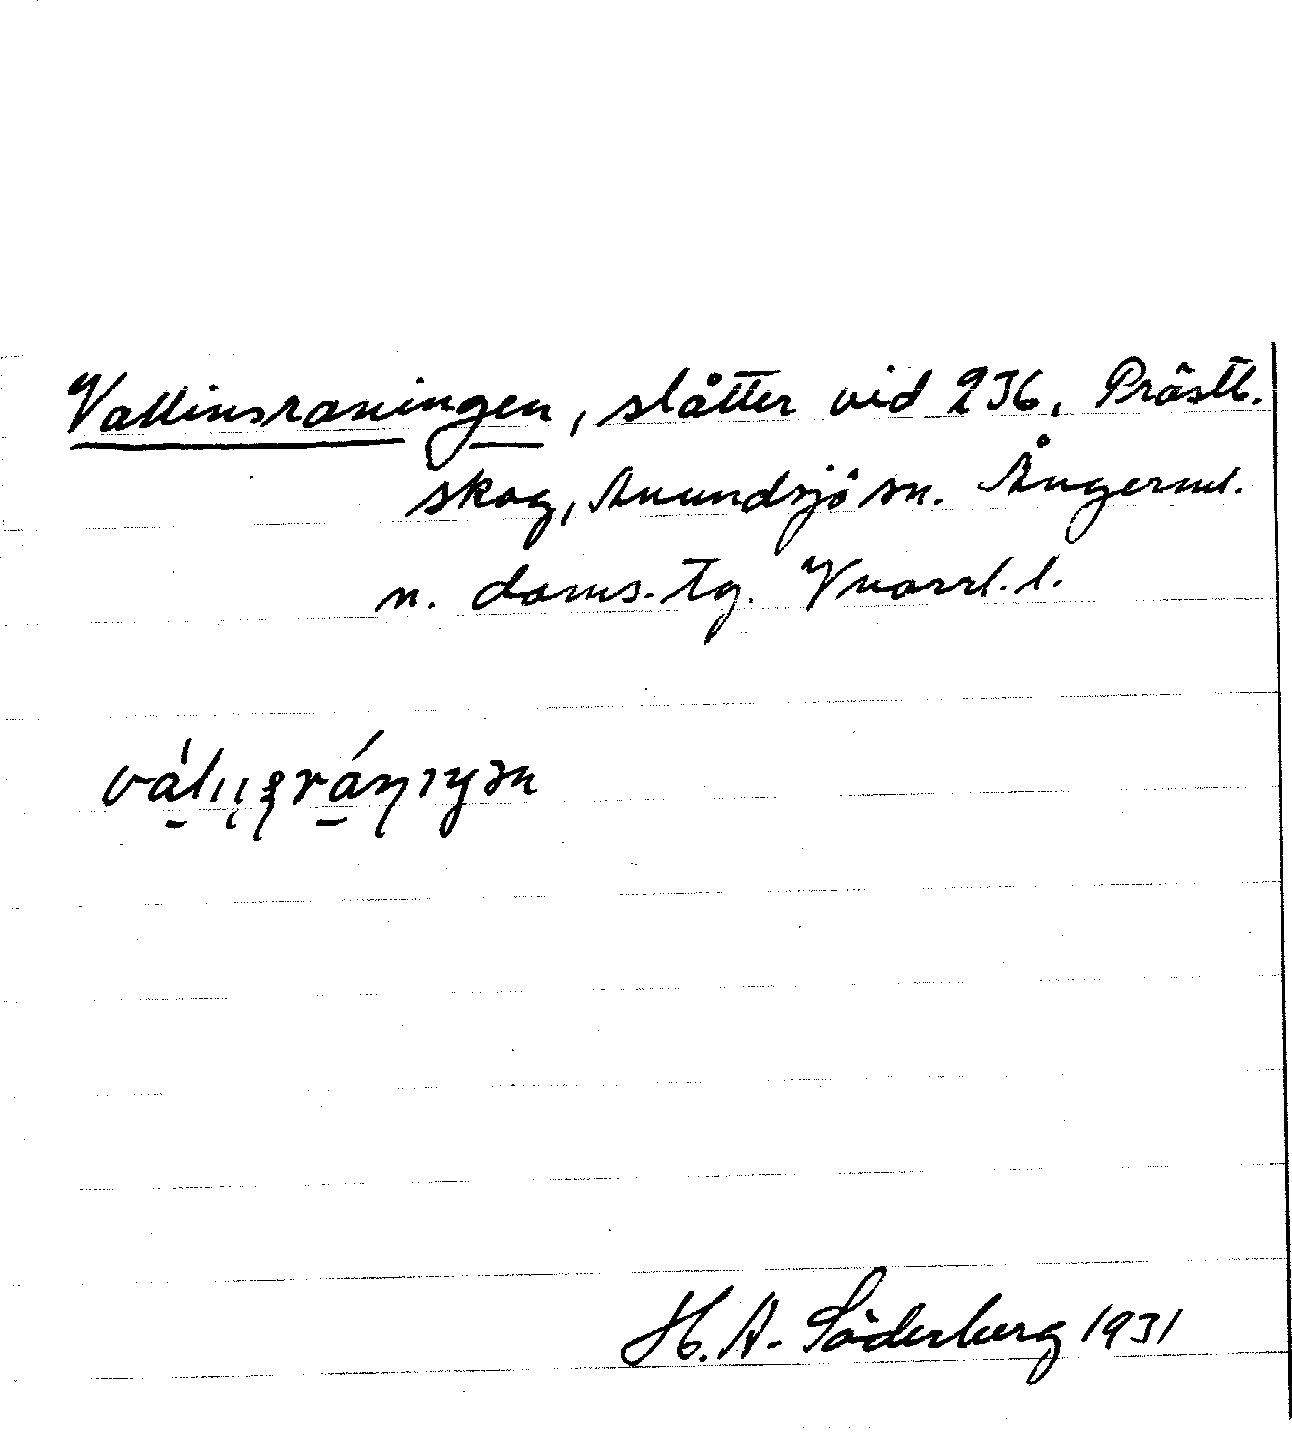 Vallinsraningen, slåtter vid 236, Prästb.
skog, Anundsjö sn. Ångerml.
n. doms.-tg. Vnorrl. l.
H. A. Söderberg 1931